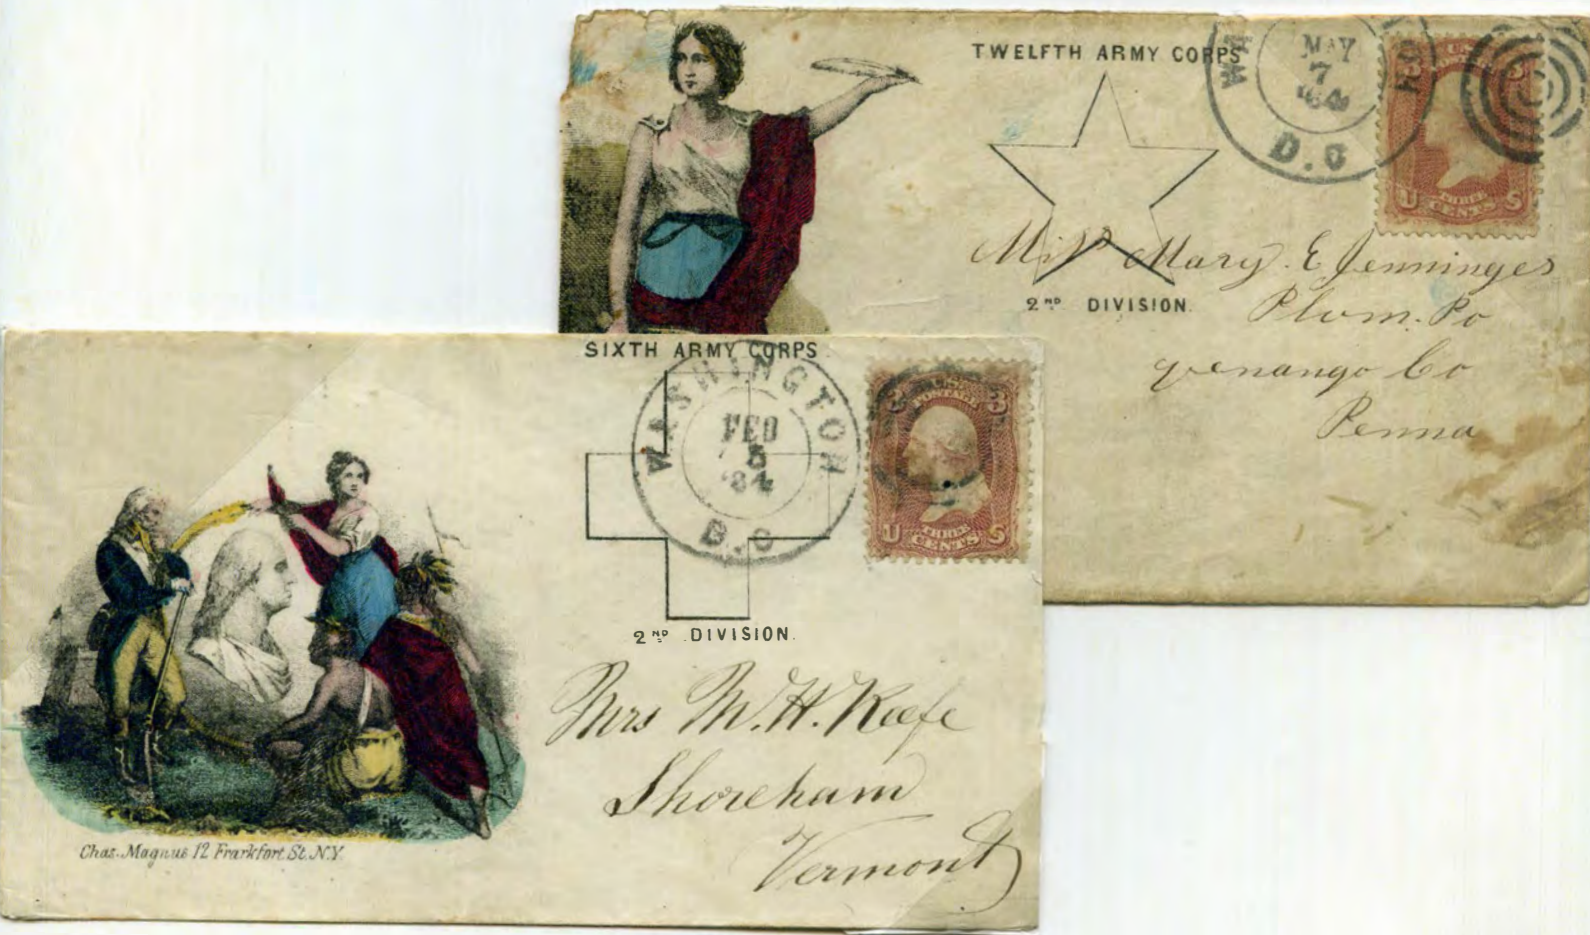 TWELFTH ARMY CORPS
MAY
7
'64
D.C
U.S.
3 3
U THREE S
CENTS
Miss Mary. E Jenninges
2ND DIVISION.
Plum. Po
venango Co
Penna
SIXTH ARMY CORPS
WASHINGTON
FEB
5
'64
D.C
U.S.
POSTAGE
3 3
U THREE S
CENTS
2ND DIVISION.
Mrs M. H. Keefe
Shoreham
Vermont
Chas. Magnus 12 Frankfort St. N.Y.